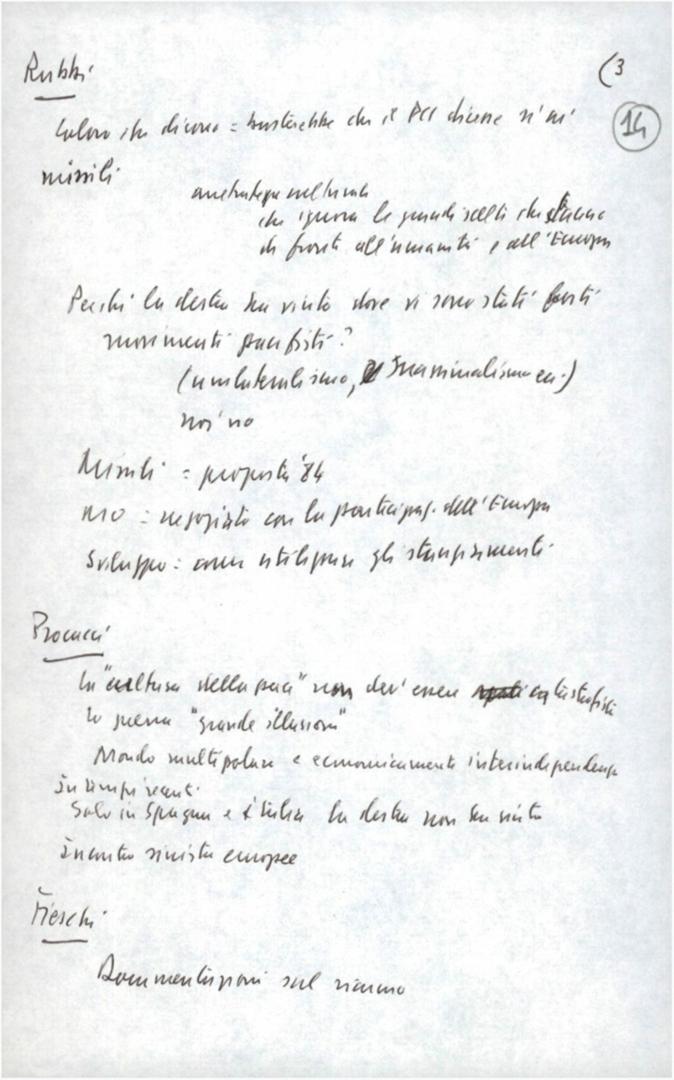 Rubbi
(3
14
Coloro che dicono = basterebbe che il PCI dicesse sì ai
missili
arretratezza culturale
che ignora le grandi scelte che stanno
di fronte all'umanità e all'Europa
Perché la destra ha vinto dove vi sono stati forti
movimenti pacifisti?
(unilateralismo, ecc.)
noi no
Missili = proposta '84
MO = negoziato con la partecipaz. dell'Europa
Sviluppo: come utilizzare gli stanziamenti
Procacci
La "cultura della pace" non dev'essere catastrofista
La guerra "grande illusione"
Mondo multipolare e economicamente interindipendenza
In tempi recenti
Solo in Spagna e Italia la destra non ha vinto
Incontro sinistra europee
Fieschi
Documentazioni sul riarmo